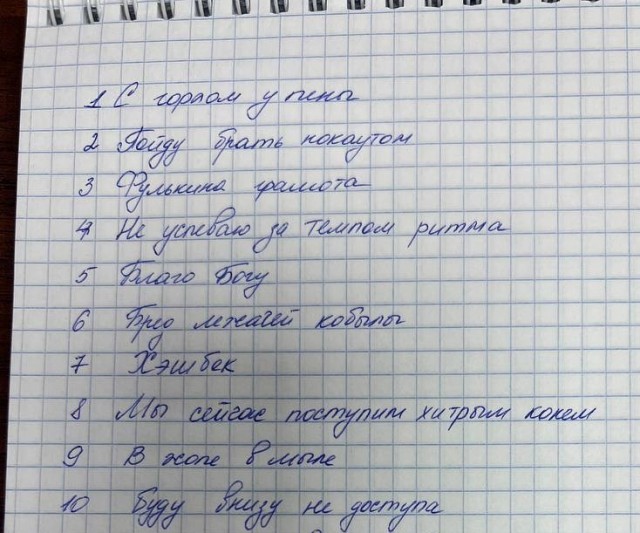 1 С горлом у пены
2 Пойду брать нокаутом
3 Фулькина грамота
4 Не успеваю за темпом ритма
5 Благо Богу
6 Бред лежачей кобылы
7 Хэшбек
8 Мы сейчас поступим хитрым конем
9 В жопе в мыле
10 Буду внизу не доступа